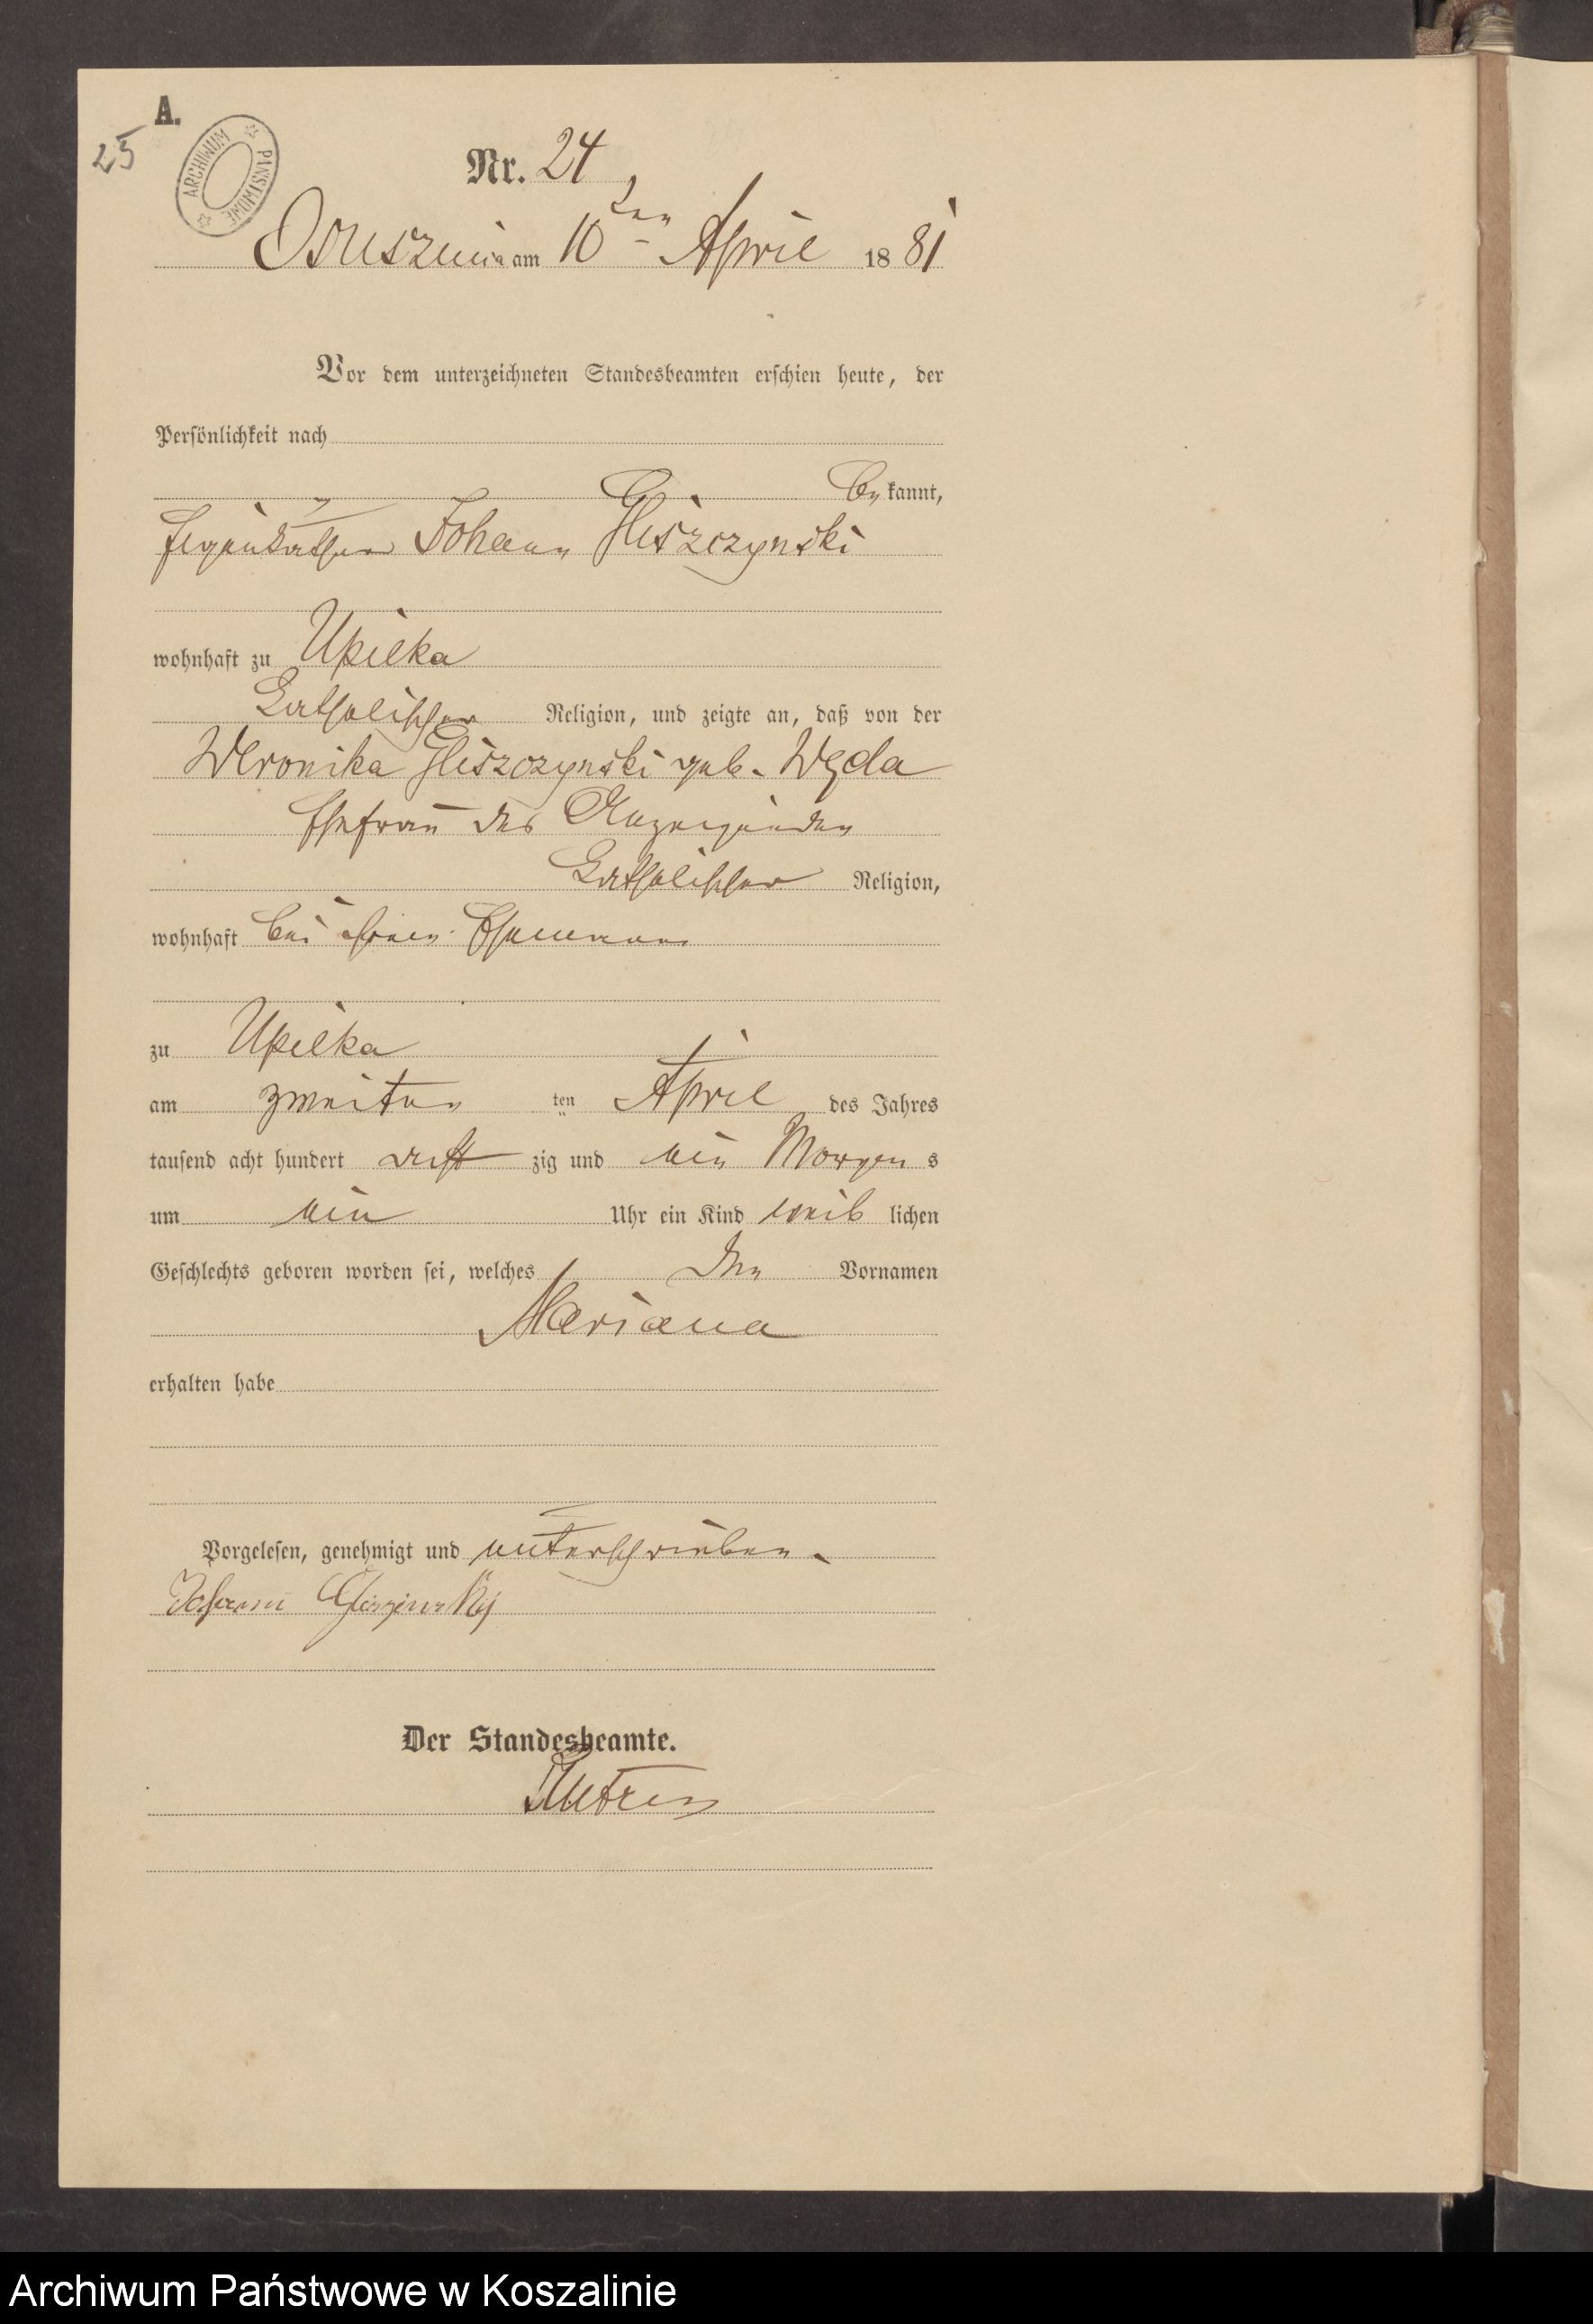 A.
25
ARCHIWUM PAŃSTWOWE
Nr. 24
Osuszniza am 10ten April 1881
Vor dem unterzeichneten Standesbeamten erschien heute, der
Persönlichkeit nach
bekannt,
Eigenkäthner Johann Gliszczynski
wohnhaft zu Upilka
katholischer Religion, und zeigte an, daß von der
Weronika Gliszczynski geb. Węda
Ehefrau des Anzeigenden
katholischer Religion,
wohnhaft bei ihrem Ehemann
zu Upilka
am zweiten ten April des Jahres
tausend acht hundert acht zig und ein Morgens
um ein Uhr ein Kind weib lichen
Geschlechts geboren worden sei, welches den Vornamen
Mariana
erhalten habe
Vorgelesen, genehmigt und unterschrieben.
Johann
Der Standesbeamte.
Archiwum Państwowe w Koszalinie